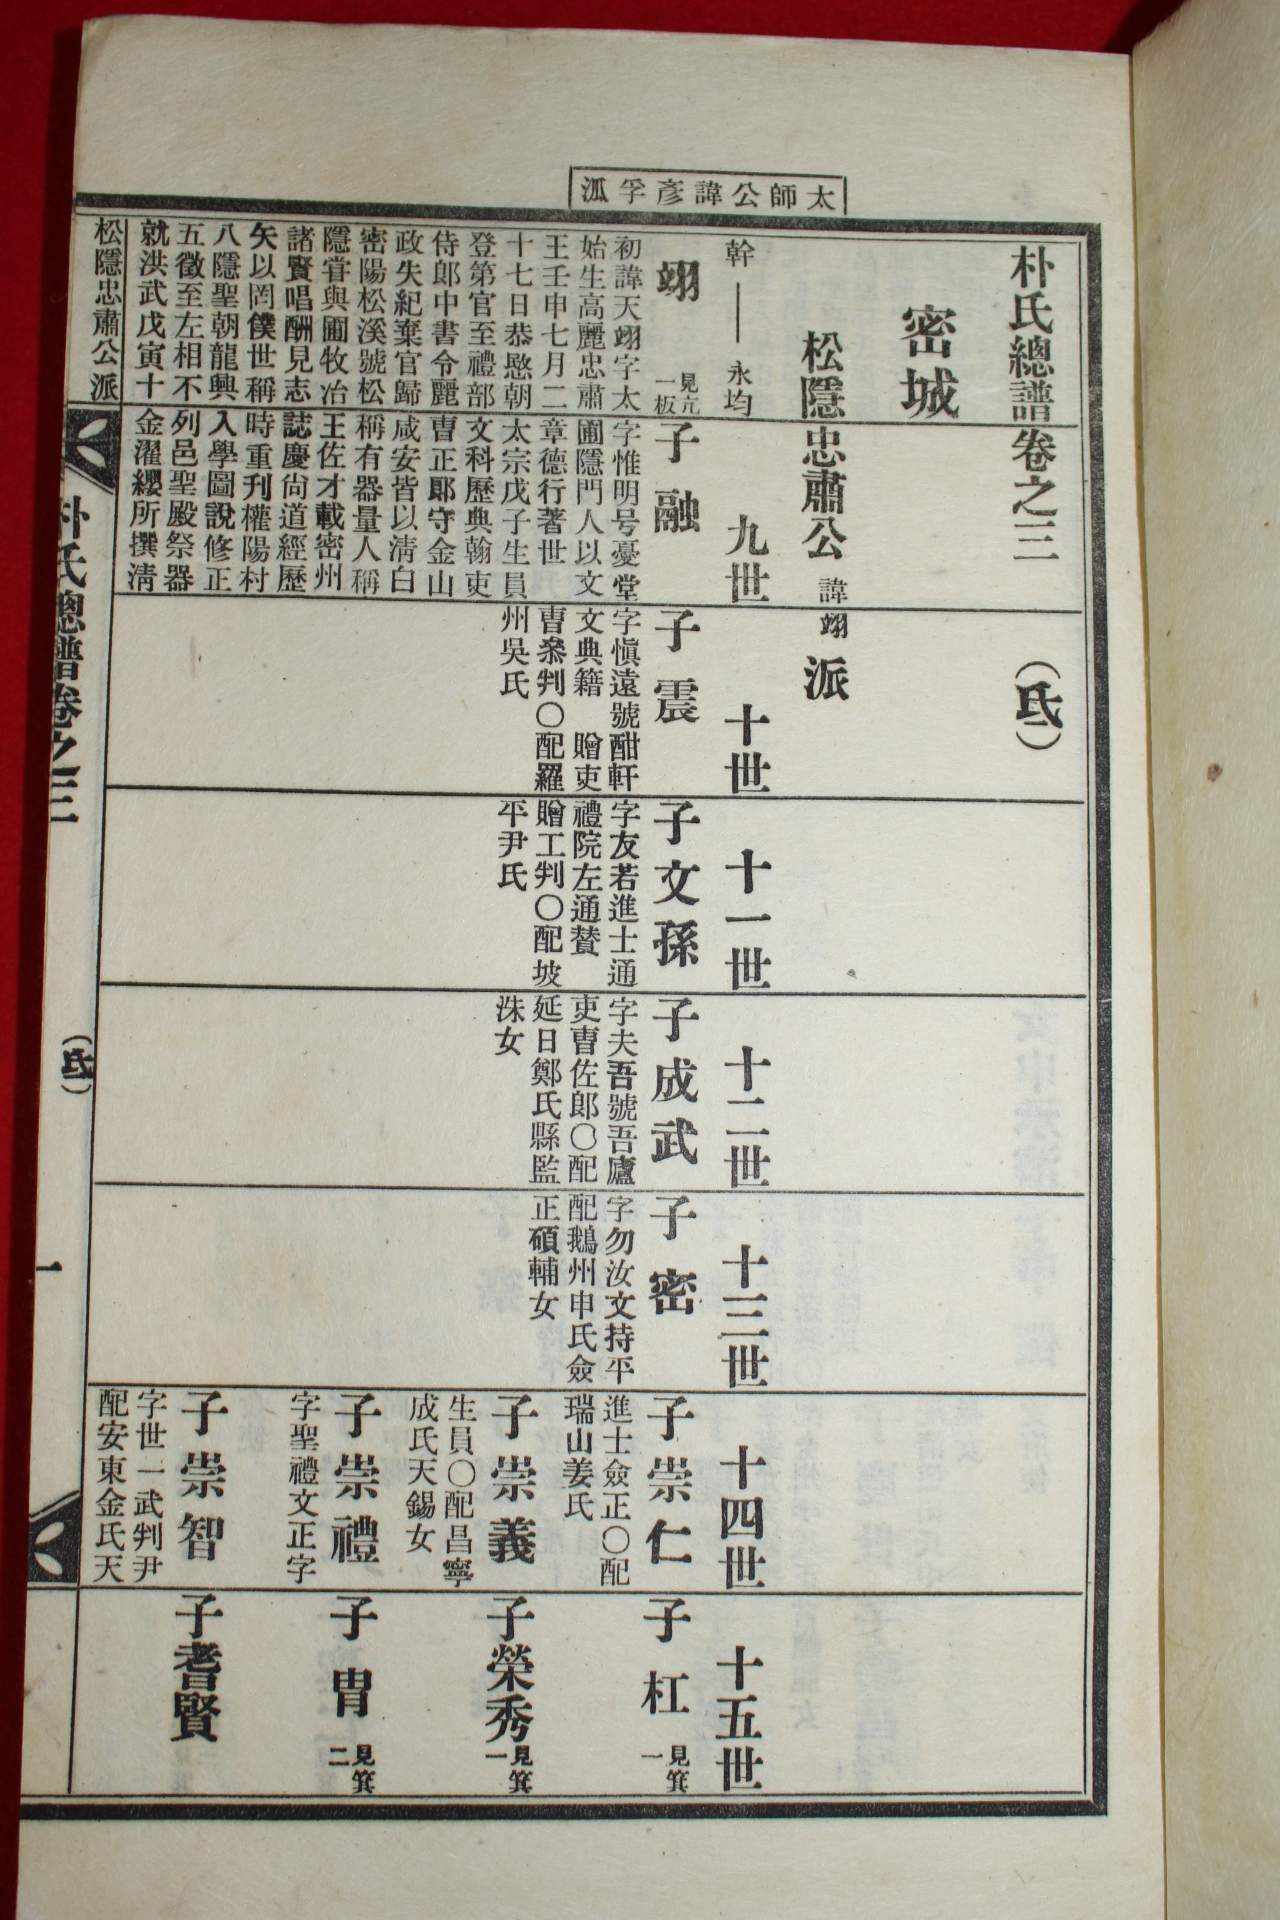 太師公諱彥孚派
朴氏總譜卷之三 (氐一)
密城
松隱忠肅公諱翊派
幹―永均
翊 見亢一板
初諱天翊字太
始生高麗忠肅
王壬申七月二
十七日恭愍朝
登第官至禮部
侍郞中書令麗
政失紀棄官歸
密陽松溪號松
隱嘗與圃牧冶
諸賢唱酬見志
矢以罔僕世稱
八隱聖朝龍興
五徵至左相不
就洪武戊寅十
九世
子融
字惟明号憂堂
圃隱門人以文
章德行著世
太宗戊子生員
文科歷典翰吏
曹正郞守金山
咸安皆以淸白
稱有器量人稱
王佐才載密州
誌慶尙道經歷
時重刊權陽村
入學圖說修正
列邑聖殿祭器
金濯纓所撰淸
十世
子震
字愼遠號酣軒
文典籍 贈吏
曹叅判○配羅
州吳氏
十一世
子文孫
字友若進士通
禮院左通贊
贈工判○配坡
平尹氏
十二世
子成武
字夫吾號吾廬
吏曹佐郞○配
延日鄭氏縣監
洙女
十三世
子密
字勿汝文持平
配鵝州申氏僉
正碩輔女
十四世
子崇仁
進士僉正○配
瑞山姜氏
子崇義
生員○配昌寧
成氏天錫女
子崇禮
字聖禮文正字
子崇智
字世一武判尹
配安東金氏天
十五世
子杠 見箕一
子榮秀 見箕一
子冑 見箕二
子耆賢
松隱忠肅公派
朴氏總譜卷之三
(氐一)
一